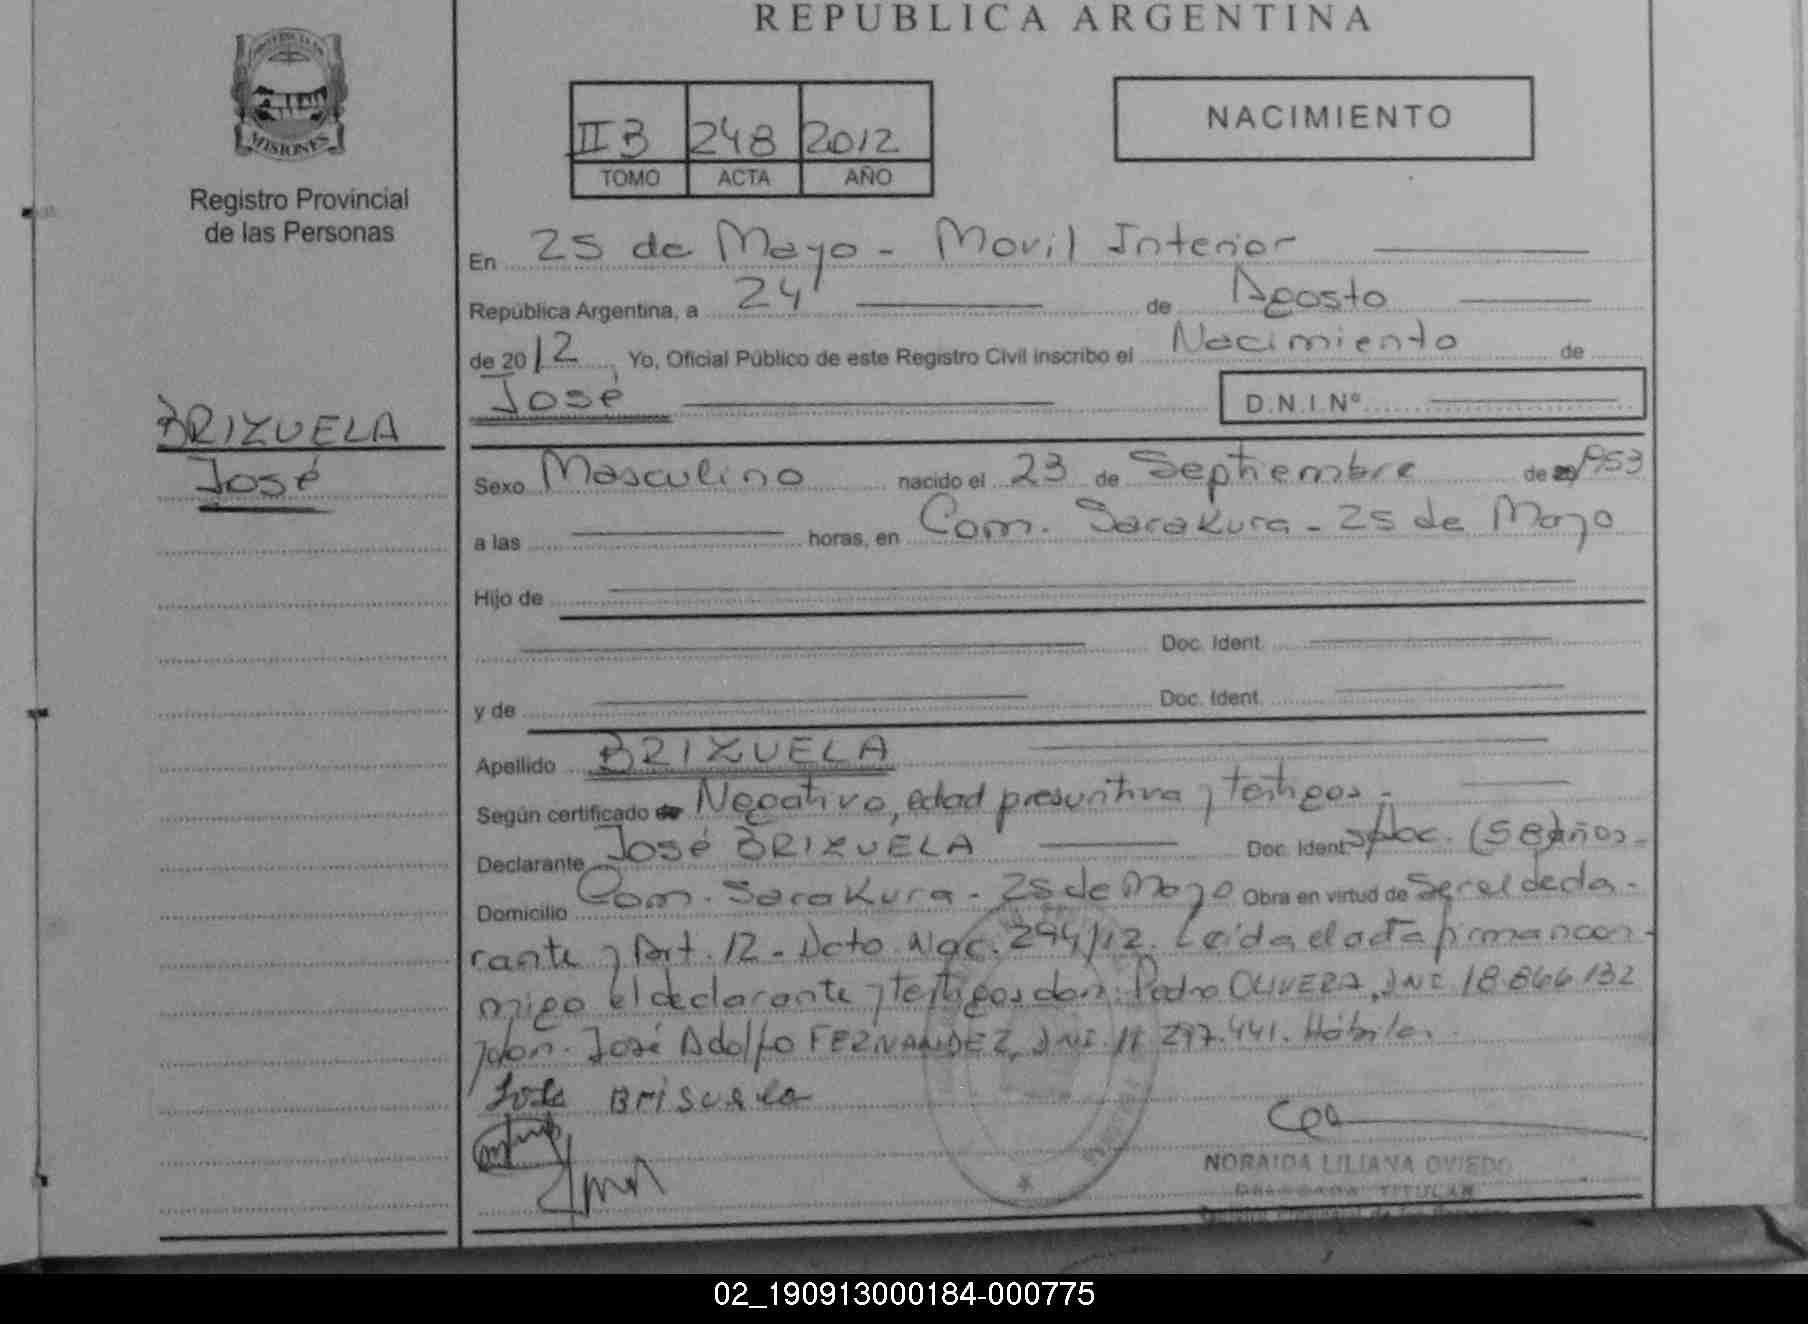 REPUBLICA ARGENTINA
PROVINCIA DE
MISIONES
Registro Provincial
de las Personas
II B 248 2012
TOMO ACTA AÑO
NACIMIENTO
En 25 de Mayo - Movil Interior
República Argentina, a 24 de Agosto
de 2012, Yo, Oficial Público de este Registro Civil inscribo el Nacimiento de
José
D.N.I.Nº
BRIZUELA
José
Sexo Masculino nacido el 23 de Septiembre de 1953
a las horas, en Com. Sarakura - 25 de Mayo
Hijo de
Doc. Ident.
y de Doc. Ident.
Apellido BRIZUELA
Según certificado de Negativo, edad presuntiva y testigos.-
Declarante José BRIZUELA Doc. Ident. s/doc. (58) años.-
Domicilio Com. Sarakura - 25 de Mayo Obra en virtud de Ser el decla-
rante y Art. 12 - Dcto. Nac. 294/12. Leída el acta firman con-
migo el declarante y testigos don: Pedro OLIVERA, DNI 18.866.132
y don. José Adolfo FERNANDEZ, DNI. 11.297.441. Hábiles.
BRISUELA
NORAIDA LILIANA OVIEDO
DELEGADA TITULAR
02_190913000184-000775